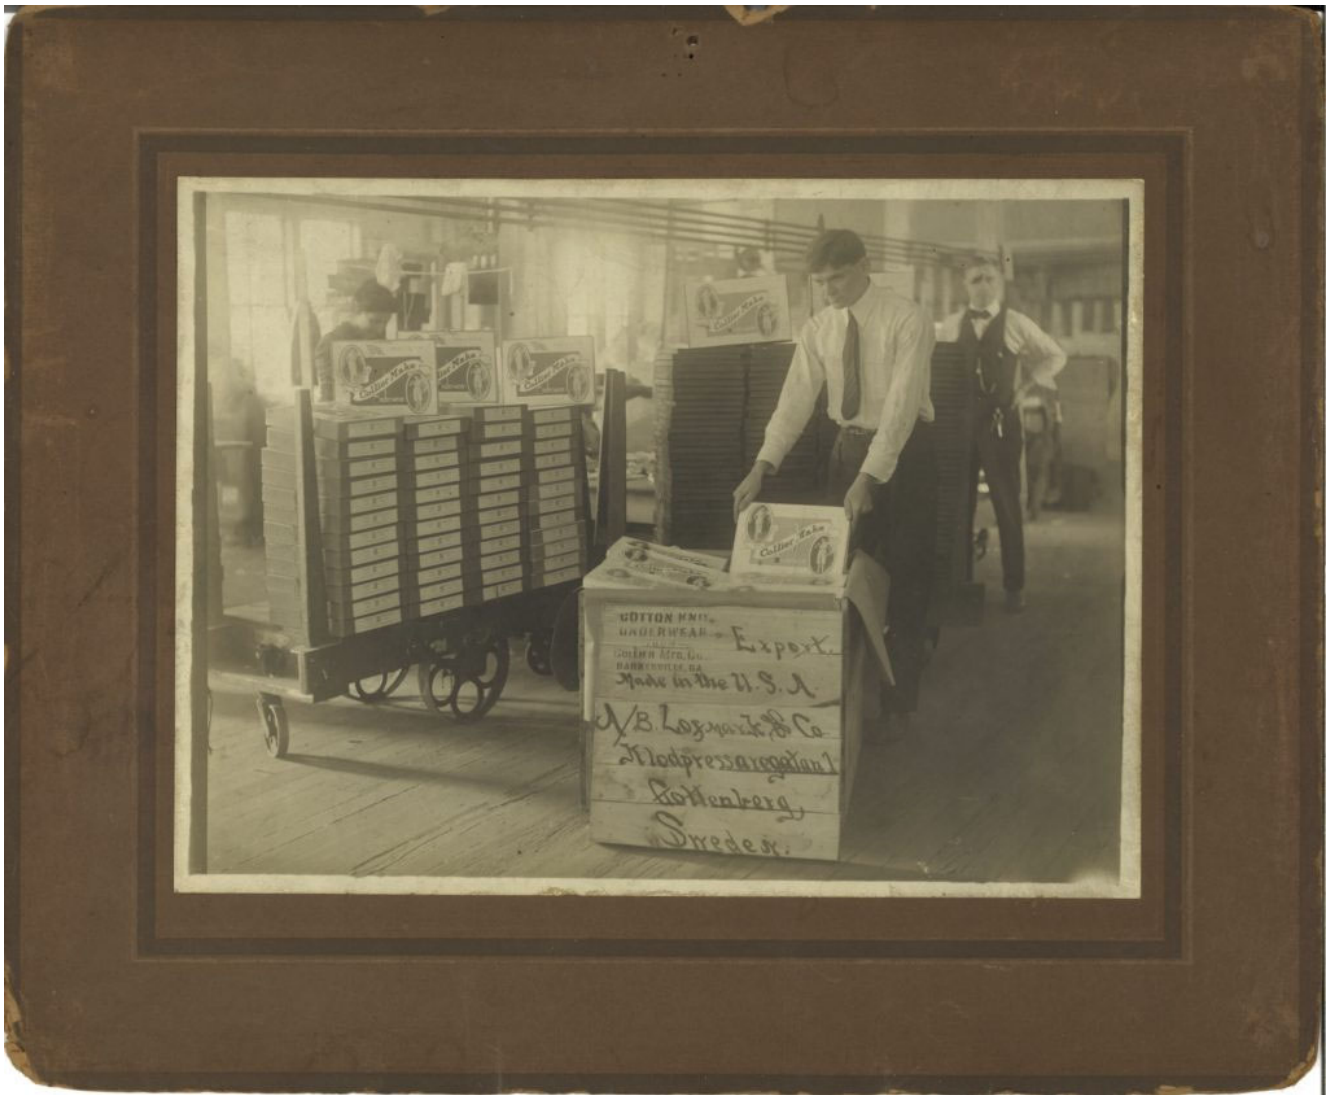 Collier Make
Make
Collier Make
Collier Make
Collier Make
COTTON KNIT
UNDERWEAR
Export.
Collier Mfg. Co.
BARNESVILLE, GA.
Made in the U.S.A.
A/B. Lofmark & Co
Klodpressaregatan 1
Gottenberg,
Sweden.